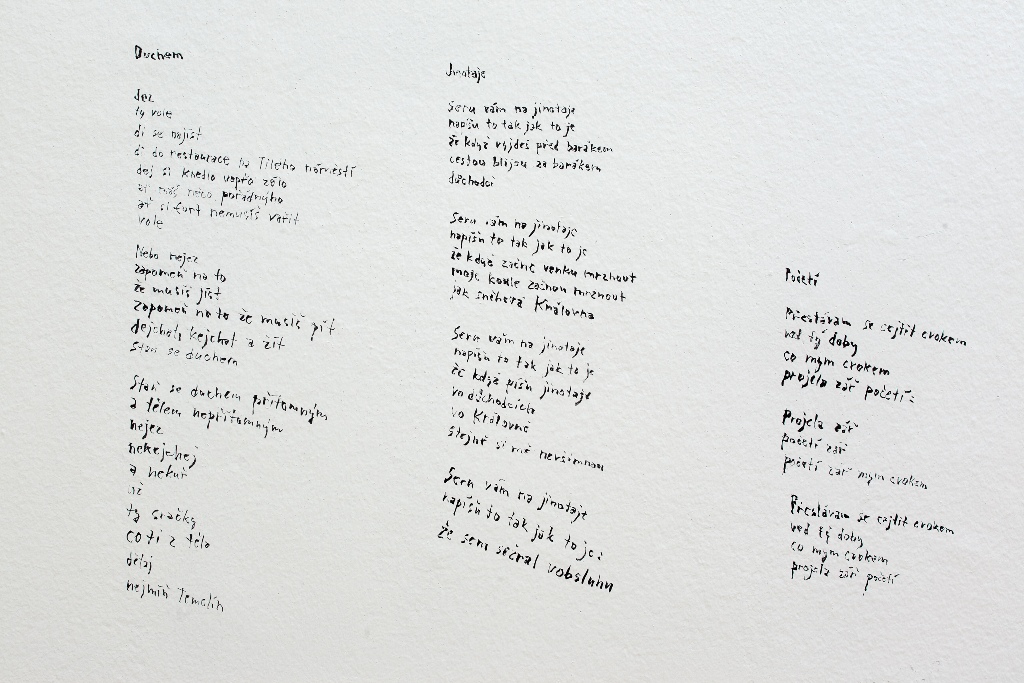 Duchem
Jez
ty vole
di se najíst
di do restaurace na Tileho náměstí
dej si knedlo vepřo zélo
ať máš něco pořádnýho
ať si furt nemusíš vařit
vole
Nebo nejez
zapomeň na to
že musíš jíst
zapomeň na to že musíš pít
dejchat kejchat a žít
staň se duchem
Staň se duchem přítomným
a tělem nepřítomným
nejez
nekejchej
a nekuř
už
ty sračky
co ti z těla
dělaj
nejmíň Temelín
Jinotaje
Seru vám na jinotaje
napíšu to tak jak to je
že když vyjdeš před barákem
cestou blijou za barákem
důchodci
Seru vám na jinotaje
napíšu to tak jak to je
že když začne venku mrznout
moje koule začnou mrznout
jak sněhová Královna
Seru vám na jinotaje
napíšu to tak jak to je
že když píšu jinotaje
vo důchodcích
vo Královně
stejně si mě nevšimnou
Seru vám na jinotaje
napíšu to tak jak to je:
že sem sečral vobsluhu
Početí
Přestávam se cejtit cvokem
vod tý doby
co mym cvokem
projela zář početí:
Projela zář
početí zář
početí zář mym cvokem
Přestávam se cejtit cvokem
vod tý doby
co mym cvokem
projela zář početí